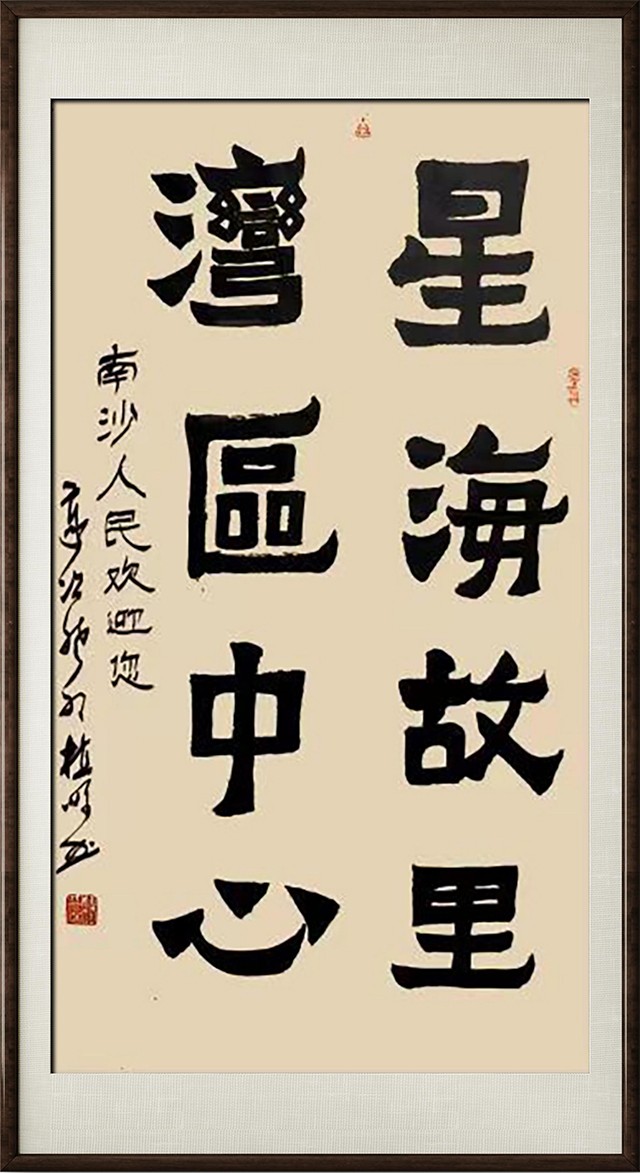 星海故里
灣區中心
南沙人民欢迎您
植明